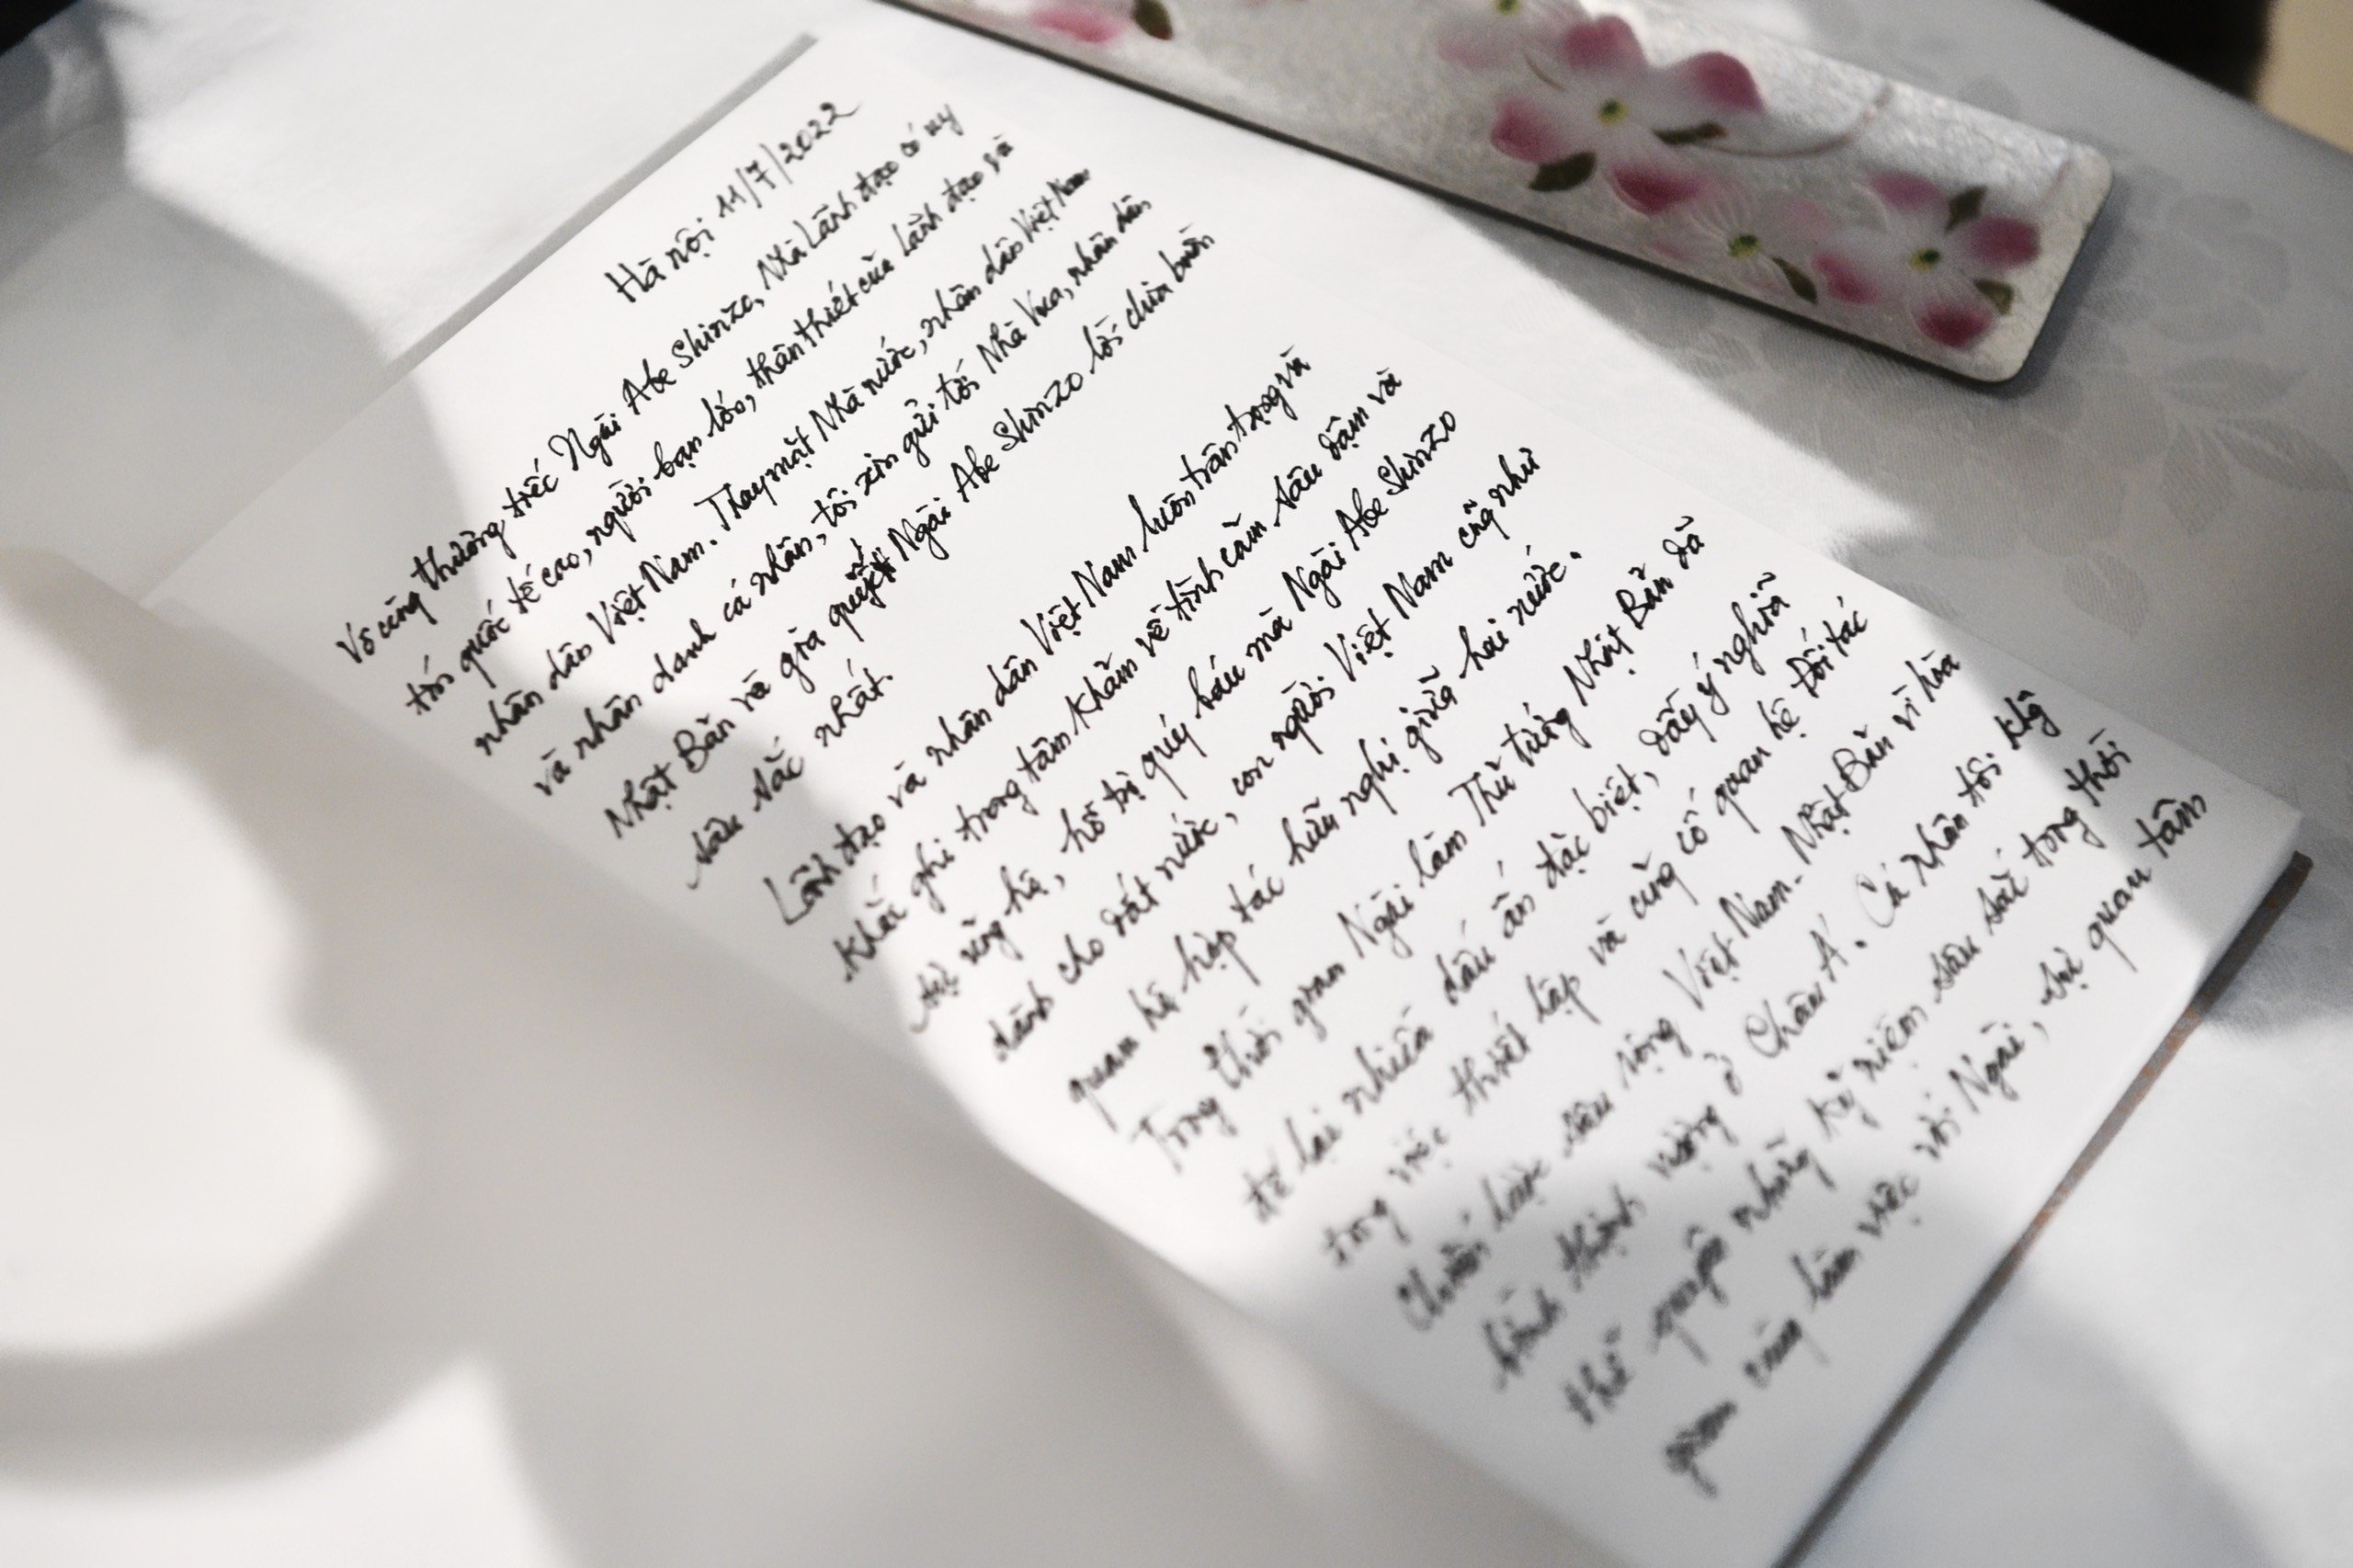 Hà nội 11/7/2022
Vô cùng thương tiếc Ngài Abe Shinzo, Nhà Lãnh đạo có uy
tín quốc tế cao, người bạn lớn, thân thiết của Lãnh đạo và
nhân dân Việt Nam. Thay mặt Nhà nước, nhân dân Việt Nam
và nhân danh cá nhân, tôi xin gửi tới Nhà Vua, nhân dân
Nhật Bản và gia quyến Ngài Abe Shinzo lời chia buồn
sâu sắc nhất.
Lãnh đạo và nhân dân Việt Nam luôn trân trọng và
khắc ghi trong tâm khảm về tình cảm sâu đậm và
sự ủng hộ, hỗ trợ quý báu mà Ngài Abe Shinzo
dành cho đất nước, con người Việt Nam cũng như
quan hệ hợp tác hữu nghị giữa hai nước.
Trong thời gian Ngài làm Thủ tướng Nhật Bản đã
để lại nhiều dấu ấn đặc biệt, đầy ý nghĩa
trong việc thiết lập và củng cố quan hệ Đối tác
Chiến lược sâu rộng Việt Nam - Nhật Bản vì hòa
bình thịnh vượng ở Châu Á. Cá nhân tôi khg
thể quên những kỷ niệm sâu sắc trong thời
gian cùng làm việc với Ngài, sự quan tâm